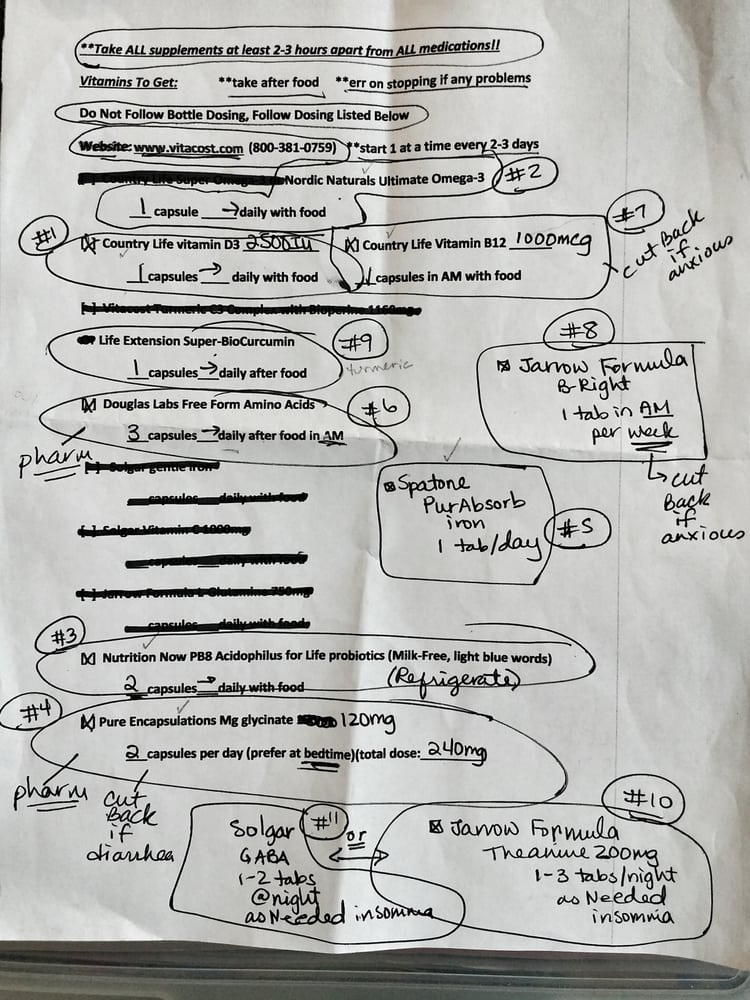 **Take ALL supplements at least 2-3 hours apart from ALL medications!!
Vitamins To Get: **take after food **err on stopping if any problems
Do Not Follow Bottle Dosing, Follow Dosing Listed Below
Website: www.vitacost.com (800-381-0759) **start 1 at a time every 2-3 days
[ ] Country Life Super Omega-3 Nordic Naturals Ultimate Omega-3 #2
1 capsule → daily with food
#7
cut Back
if
anxious
#1
[X] Country Life vitamin D3 2500IU [X] Country Life Vitamin B12 1000mcg
1 capsules → daily with food 1 capsules in AM with food
[ ] Vitacost Turmeric C3 Complex with Bioperine 1160mg
Life Extension Super-BioCurcumin #9
1 capsules → daily after food turmeric
#8
☒ Jarrow Formula
B-Right
1 tab in AM
per week
↳ cut
Back
if
anxious
[X] Douglas Labs Free Form Amino Acids #6
3 capsules → daily after food in AM
pharm
[ ] Solgar gentle iron
capsules daily with food
[ ] Solgar Vitamin C 1000mg
capsules daily with food
[ ] Jarrow Formula L-Glutamine 750mg
capsules daily with food
☒ Spatone
PurAbsorb
iron
1 tab/day
#5
#3
[X] Nutrition Now PB8 Acidophilus for Life probiotics (Milk-Free, light blue words)
2 capsules → daily with food (Refrigerate)
#4
[X] Pure Encapsulations Mg glycinate 120mg
2 capsules per day (prefer at bedtime)(total dose: 240mg
pharm
cut
Back
if
diarrhea
Solgar #11
GABA
1-2 tabs
@night
as Needed insomnia
or
↔
#10
☒ Jarrow Formula
Theanine 200mg
1-3 tabs/night
as Needed
insomnia